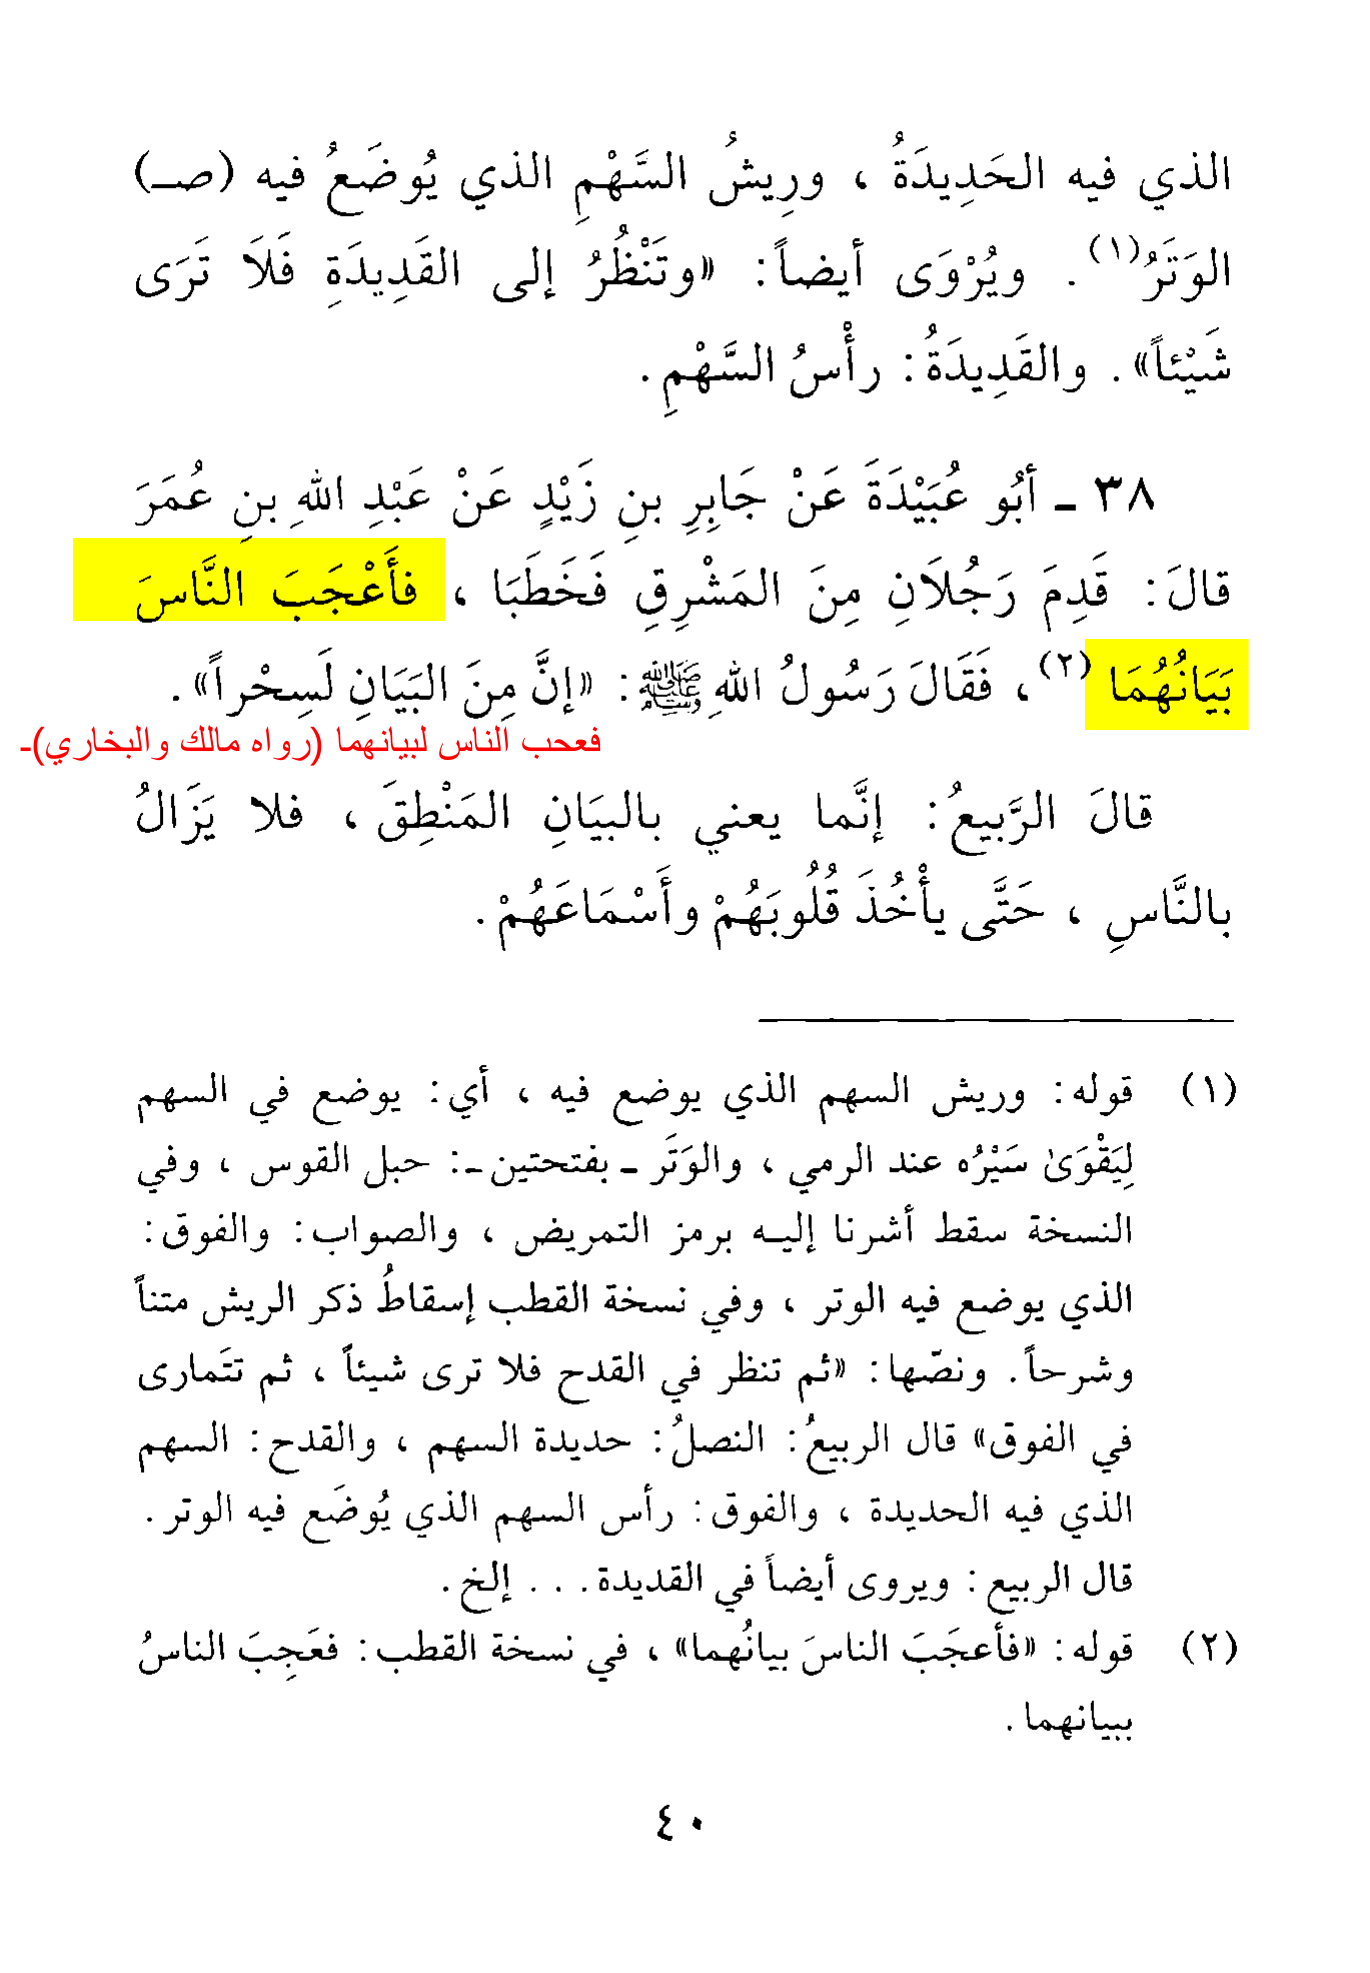 الذي فيه الحَدِيدَةُ ، ورِيشُ السَّهْمِ الذي يُوضَعُ فيه (صـ)
الوَتَرُ(١) . ويُرْوَى أيضاً: «وتَنْظُرُ إلى القَدِيدَةِ فَلَا تَرَى
شَيْئاً» . والقَدِيدَةُ: رأْسُ السَّهْمِ.
٣٨ ـ أبُو عُبَيْدَةَ عَنْ جَابِرِ بنِ زَيْدٍ عَنْ عَبْدِ اللهِ بنِ عُمَرَ
قالَ: قَدِمَ رَجُلَانِ مِنَ المَشْرِقِ فَخَطَبَا ، فأَعْجَبَ النَّاسَ
بَيَانُهُمَا (٢)، فَقَالَ رَسُولُ اللهِ ﷺ: «إنَّ مِنَ البَيَانِ لَسِحْراً».
فعحب الناس لبيانهما (رواه مالك والبخاري)-
قالَ الرَّبِيعُ: إنَّما يعني بالبيَانِ المَنْطِقَ ، فلا يَزَالُ
بالنَّاسِ ، حَتَّى يأْخُذَ قُلُوبَهُمْ وأَسْمَاعَهُمْ.
(١) قوله: وريش السهم الذي يوضع فيه ، أي: يوضع في السهم
لِيَقْوَىٰ سَيْرُه عند الرمي ، والوَتَر ـ بفتحتين ـ: حبل القوس ، وفي
النسخة سقط أشرنا إليه برمز التمريض ، والصواب: والفوق:
الذي يوضع فيه الوتر ، وفي نسخة القطب إسقاطُ ذكر الريش متناً
وشرحاً. ونصّها: «ثم تنظر في القدح فلا ترى شيئاً ، ثم تتَمارى
في الفوق» قال الربيعُ: النصلُ: حديدة السهم ، والقدح: السهم
الذي فيه الحديدة ، والفوق: رأس السهم الذي يُوضَع فيه الوتر.
قال الربيع: ويروى أيضاً في القديدة. . . إلخ.
(٢) قوله: «فأعجَبَ الناسَ بيانُهما» ، في نسخة القطب: فعَجِبَ الناسُ
ببيانهما.
٤٠